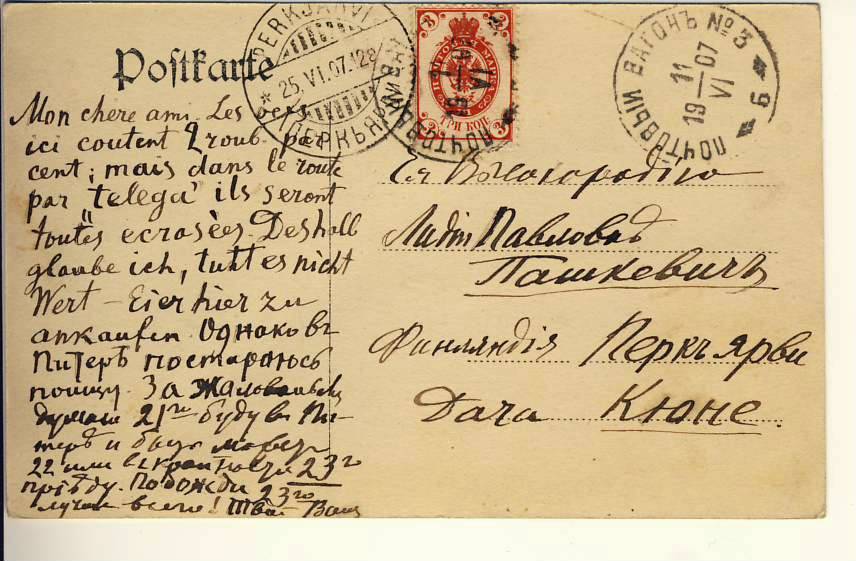 Postkarte
PERKJÄRVI
25.VI.07.
ПЕРКЪЯРВИ
ПОЧТОВАЯ МАРКА
3
3
ТРИ КОП.
3
3
ПОЧТОВЫЙ ВАГОНЪ № 3
11
VI
19 07
6
Mon chere ami. Les oeufs
ici coutent 2 roub. par
cent; mais dans le route
par "telega" ils seront
toutes ecrasées. Deshalb
glaube ich, tuht es nicht
Wert – Eier hier zu
ankaufen. Однако въ
Питеръ постараюсь
поищу. За жалованьемъ
думаю 21го буду въ Пи-
теръ и быть можетъ
22 или въ крайности 23го
пріѣду. Подожди 23го
лучше всего! Твой Ваня
Ея Высокородію
Лидіи Павловнѣ
Пашкевичъ
Финляндія Перкъярви
Дача Кюне.